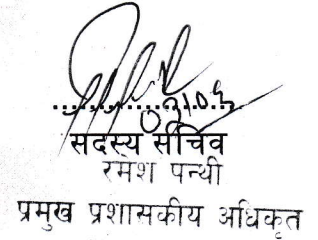 सदस्य सचिव
रमेश पन्थी
प्रमुख प्रशासकीय अधिकृत